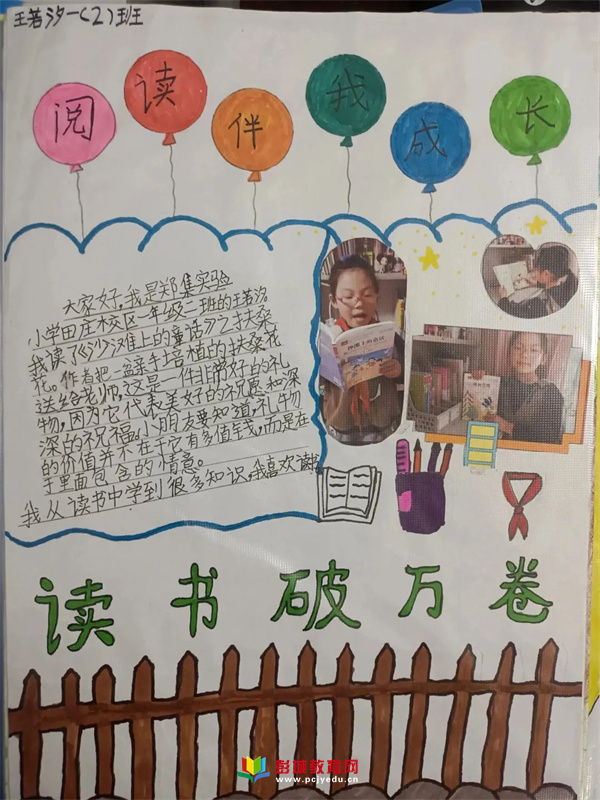 王若汐一(2)班
阅读伴我成长
大家好,我是郑集实验
小学田庄校区一年级二班的王若汐
我读了《沙滩上的童话》之扶桑
花。作者把一盆亲手培植的扶桑花
送给老师,这是一件非常好的礼
物,因为它代表美好的祝愿和深
深的祝福。小朋友要知道,礼物
的价值并不在于它有多值钱,而是在
于里面包含的情意。
我从读书中学到很多知识,我喜欢读书
沙滩上的童话
读书破万卷
彭城教育网
www.pcjyedu.cn